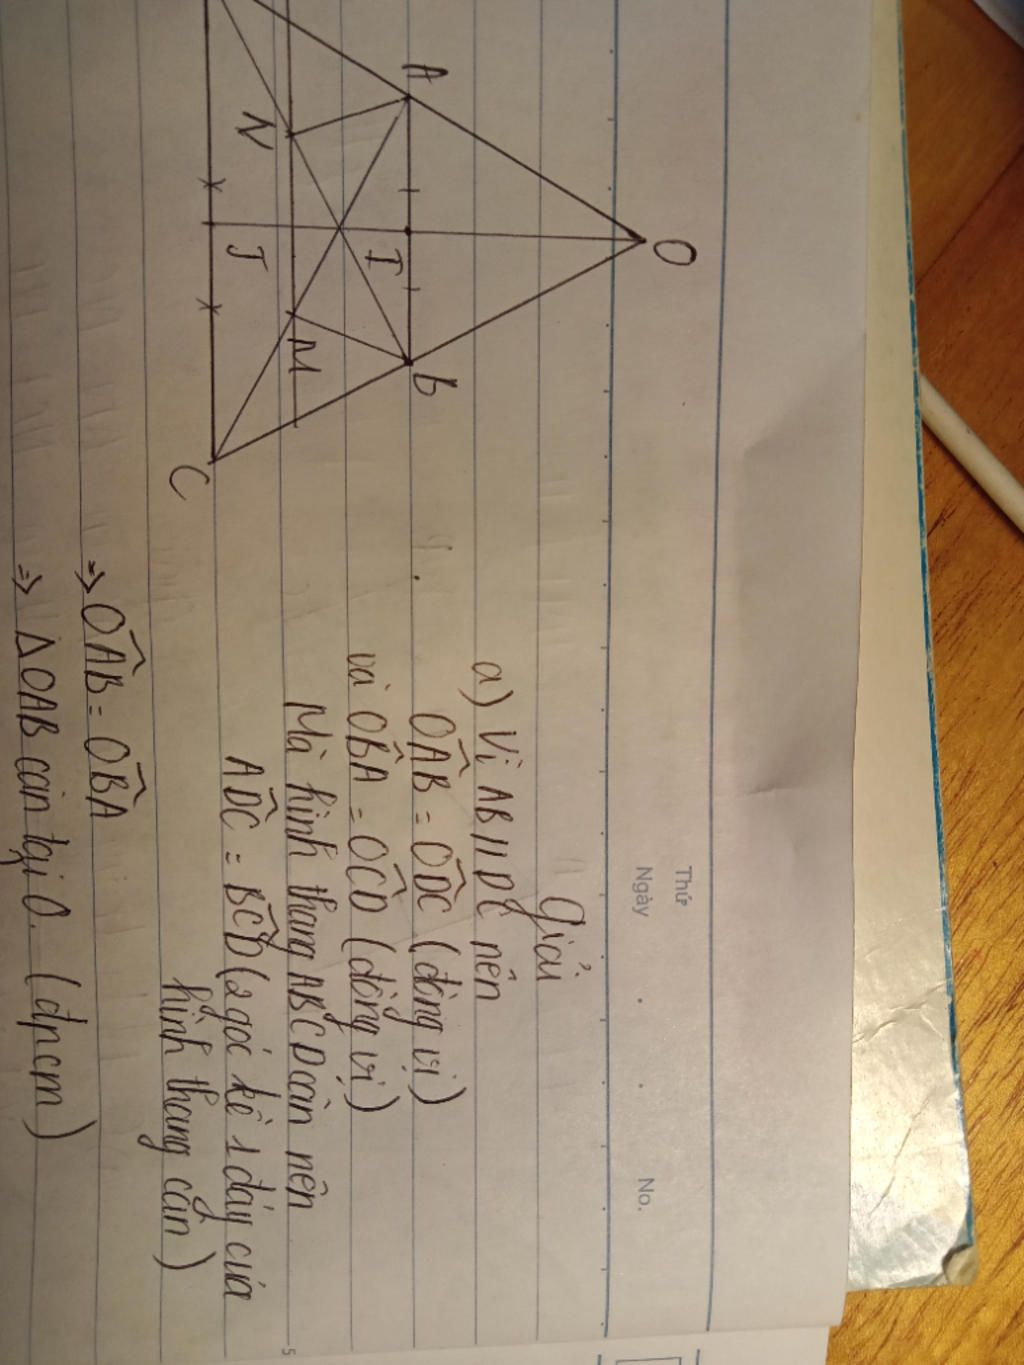 Thứ
Ngày . . No.
Giải
O
A
B
I
N
M
J
C
a) Vì AB // DC nên
OÂB = ODC (đồng vị)
và OBA = OCD (đồng vị)
Mà hình thang ABCD cân nên
ADC = BCD (2 góc kề 1 đáy của
hình thang cân)
=> OAB = OBA
=> ΔOAB cân tại O. (đpcm)
5